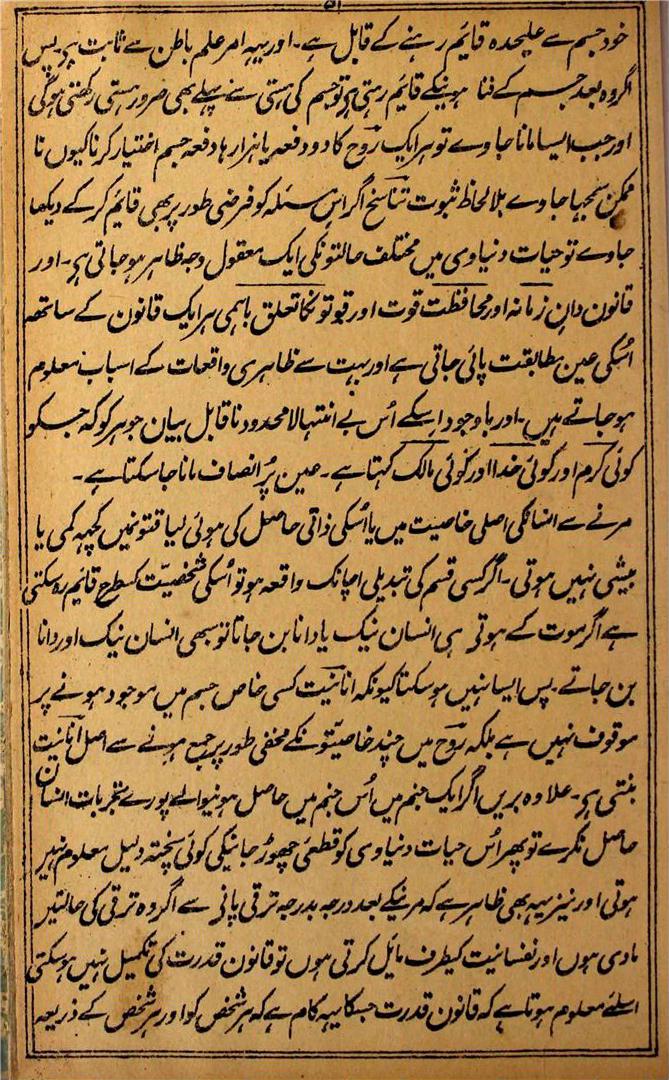 ۵۱
خود جسم سے علیحدہ قایم رہنے کے قابل ہے۔ اور یہہ امر علم باطن سے ثابت ہی۔ پس
اگر وہ بعد جسم کے فنا ہونیکے قایم رہتی ہی تو جسم کی ہستی سے پہلے بھی ضرور ہستی رکھتی ہوگی
اور جب ایسا مانا جاوے تو ہر ایک رُوح کا دو دفعہ یا ہزارہا دفعہ جسم اختیار کرنا کیوں نا
ممکن سمجہا جاوے بلا لحاظ ثبوت تناسخ اگر اس مسئلہ کو فرضی طور پر بھی قایم کر کے دیکھا
جاوے تو حیات دنیاوی میں مختلف حالتونکی ایک معقول وجہ ظاہر ہو جاتی ہی۔ اور
قانون دان زمانہ اور محافظت قوت اور قوتونکا تعلق باہمی ہر ایک قانون کے ساتھہ
اُسکی عین مطابقت پائی جاتی ہے اور بہت سے ظاہری واقعات کے اسباب معلوم
ہو جاتے ہیں۔ اور باوجود اسکے اُس بے انتہا لا محدود نا قابل بیان جوہر کو کہ جسکو
کوئی کرم اور کوئی خدا اور کوئی مالک کہتا ہے۔ عین پُر انصاف مانا جا سکتا ہے۔
مرنے سے انسانکی اصلی خاصیت میں یا اُسکی ذاتی حاصل کی ہوئی لیاقتونمیں کچہہ کمی یا
بیشی نہیں ہوتی۔ اگر کسی قسم کی تبدیلی اچانک واقعہ ہو تو اُسکی شخصیّت کسطرح قایم رہ سکتی
ہے اگر موت کے ہوتی ہی انسان نیک یا دانا بن جاتا تو سبھی انسان نیک اور دانا
بن جاتے۔ پس ایسا نہیں ہو سکتا کیونکہ انانیت کسی خاص جسم میں موجود ہونے پر
موقوف نہیں ہے بلکہ رُوح میں چند خاصیّتونکے مخفی طور پر جمع ہونے سے اصل انانیت
بنتی ہی۔ علاوہ بریں اگر ایک جنم میں اُس جنم میں حاصل ہونیوالے پورے تجربات انسان
حاصل نکرے تو پھر اُس حیات دنیاوی کو قطعی چھوڑ جانیکی کوئی پختہ دلیل معلوم نہیں
ہوتی اور نیز یہہ بھی ظاہر ہے کہ مرنیکے بعد درجہ بدرجہ ترقی پانی سے اگر وہ ترقی کی حالتیں
مادی ہوں اور نفسانیت کیطرف مایل کرتی ہوں تو قانون قدرت کی تکمیل نہیں ہو سکتی
اسلئے معلوم ہوتا ہے کہ قانون قدرت جسکا یہہ کام ہے کہ ہر شخص کو اور ہر شخص کے ذریعہ